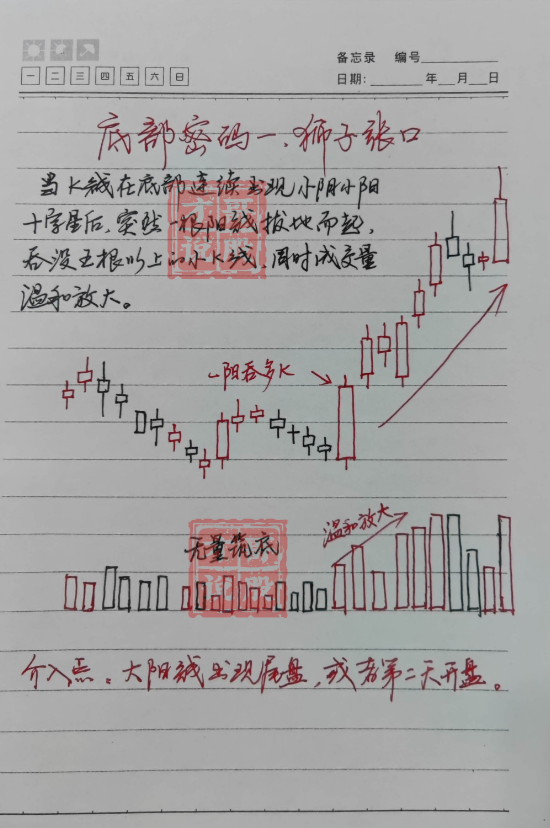 备忘录 编号
一 二 三 四 五 六 日
日期: 年 月 日
底部密码一、狮子张口
当K线在底部连续出现小阴小阳
十字星后,突然一根阳线拔地而起,
吞没五根以上的小K线,同时成交量
温和放大。
一阳吞多K
温和放大
无量筑底
介入点:大阳线出现尾盘,或者第二天开盘。